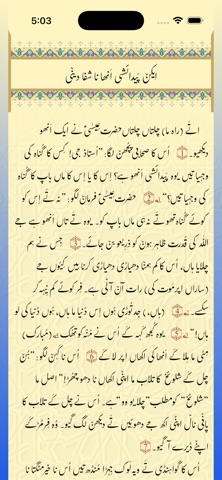 5:03
ایکن پیدائشی اَنھا نا شفا دینی
اتے (راہ ما) چلتاں چلتاں حضرت عیسیٰؑ نے ایک اَنھو
دیکھیو۔ 1 اُس کا صحابی پُچھن لگا: "اُستاذ جی! کِس کا گُناہ کی
وجہا تیں یوہ پیدائشی اَنھو ہے؟ اِس کا یا اِس کا ماں باپ کا گُناہ
کی وجہا تیں؟" 2 حضرت عیسیٰؑ فرمان لگو: "نہ تے اِس کو
کوئے گُناہ تھو تے نہ ہی ماں باپ کو۔ یوہ تے تاں اَنھو ہے جے
اللہ کی قُدرت ظاہر ہون کو ذریعو بن جائے۔ 3 جِس نے ہم
چلایا ہاں، اُس کا کم ہمنا دِھیاڑی دِھیاڑی کرنا ہیں کیوں جے
(ساراں اُپر موت کی) رات آن آلی ہے۔ فِر کوئے کم نِیہہ کر
سکے۔ 4 (ہاں)، جد توڑی ہوں اِس دُنیا ما ہاں، ہوں دُنیا کی لو
ہاں!" 5 یوہ کہہ کے اُس نے تھوکیو تے (مُبارک)
مٹی ما ملا کے اَنھا کی اَکھاں اُپر لا کے 6 اُس نا کہن لگو: "ہُن
چل کے شلوخ کا تلاب ما اپنی اَکھاں نا دھو چھڑ!" اصل ما
"شلوخ" کو مطلب "چلایو وو" ہے۔ اُس نے چل کے تلاب کا
پانی نال اپنی اَکھ جے دھوئیں تے دیکھن لگ گیو۔ وہ فِر مُڑ کے
اپنے ڈیرے آ گیو۔ 7
اُس کا گواہنڈی تے ویہ لوک جہڑا مُنڈھ تیں اُس نا خیر منگتاں